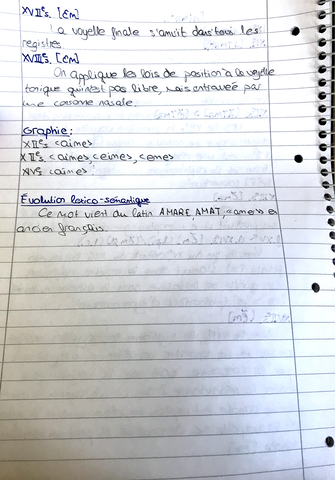 XVIIᵉs. [ɛm]
La voyelle finale s'amuït dans tous les
registres.
XVIIIᵉs. [ɛm]
On applique les lois de position à la voyelle
tonique qui n'est pas libre, mais entravée par
une consonne nasale.
Graphie :
XIIᵉs. caimes
XIIᵉs. caimes, ceimes, cemes
XIVᵉs. caimes
Évolution lexico-sémantique
Ce mot vient du latin AMARE, AMAT,
ancien français.